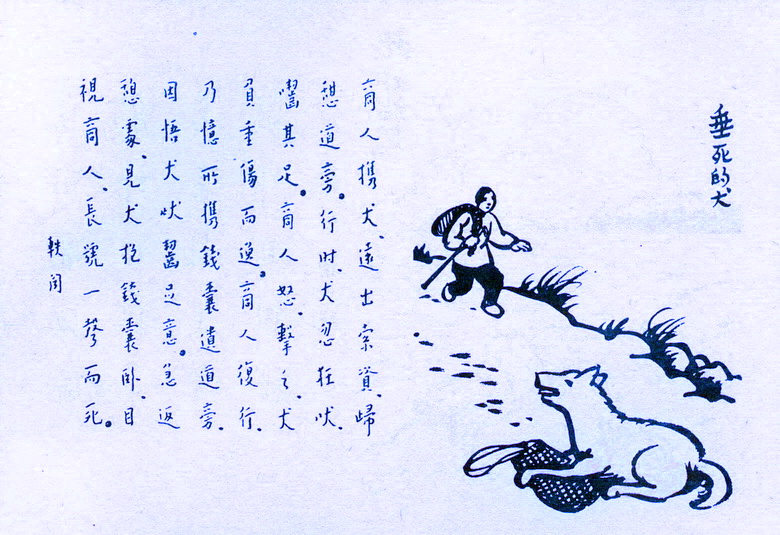 垂死的犬
商人携犬、遠出索資、歸
憩道旁。行时、犬忽狂吠、
嚙其足。商人怒、擊之、犬
負重傷而逸。商人復行、
乃憶所携錢囊遺道旁、
因悟犬吠嚙足意。急返
憩處、見犬抱錢囊卧、目
視商人、長號一聲而死。
軼聞